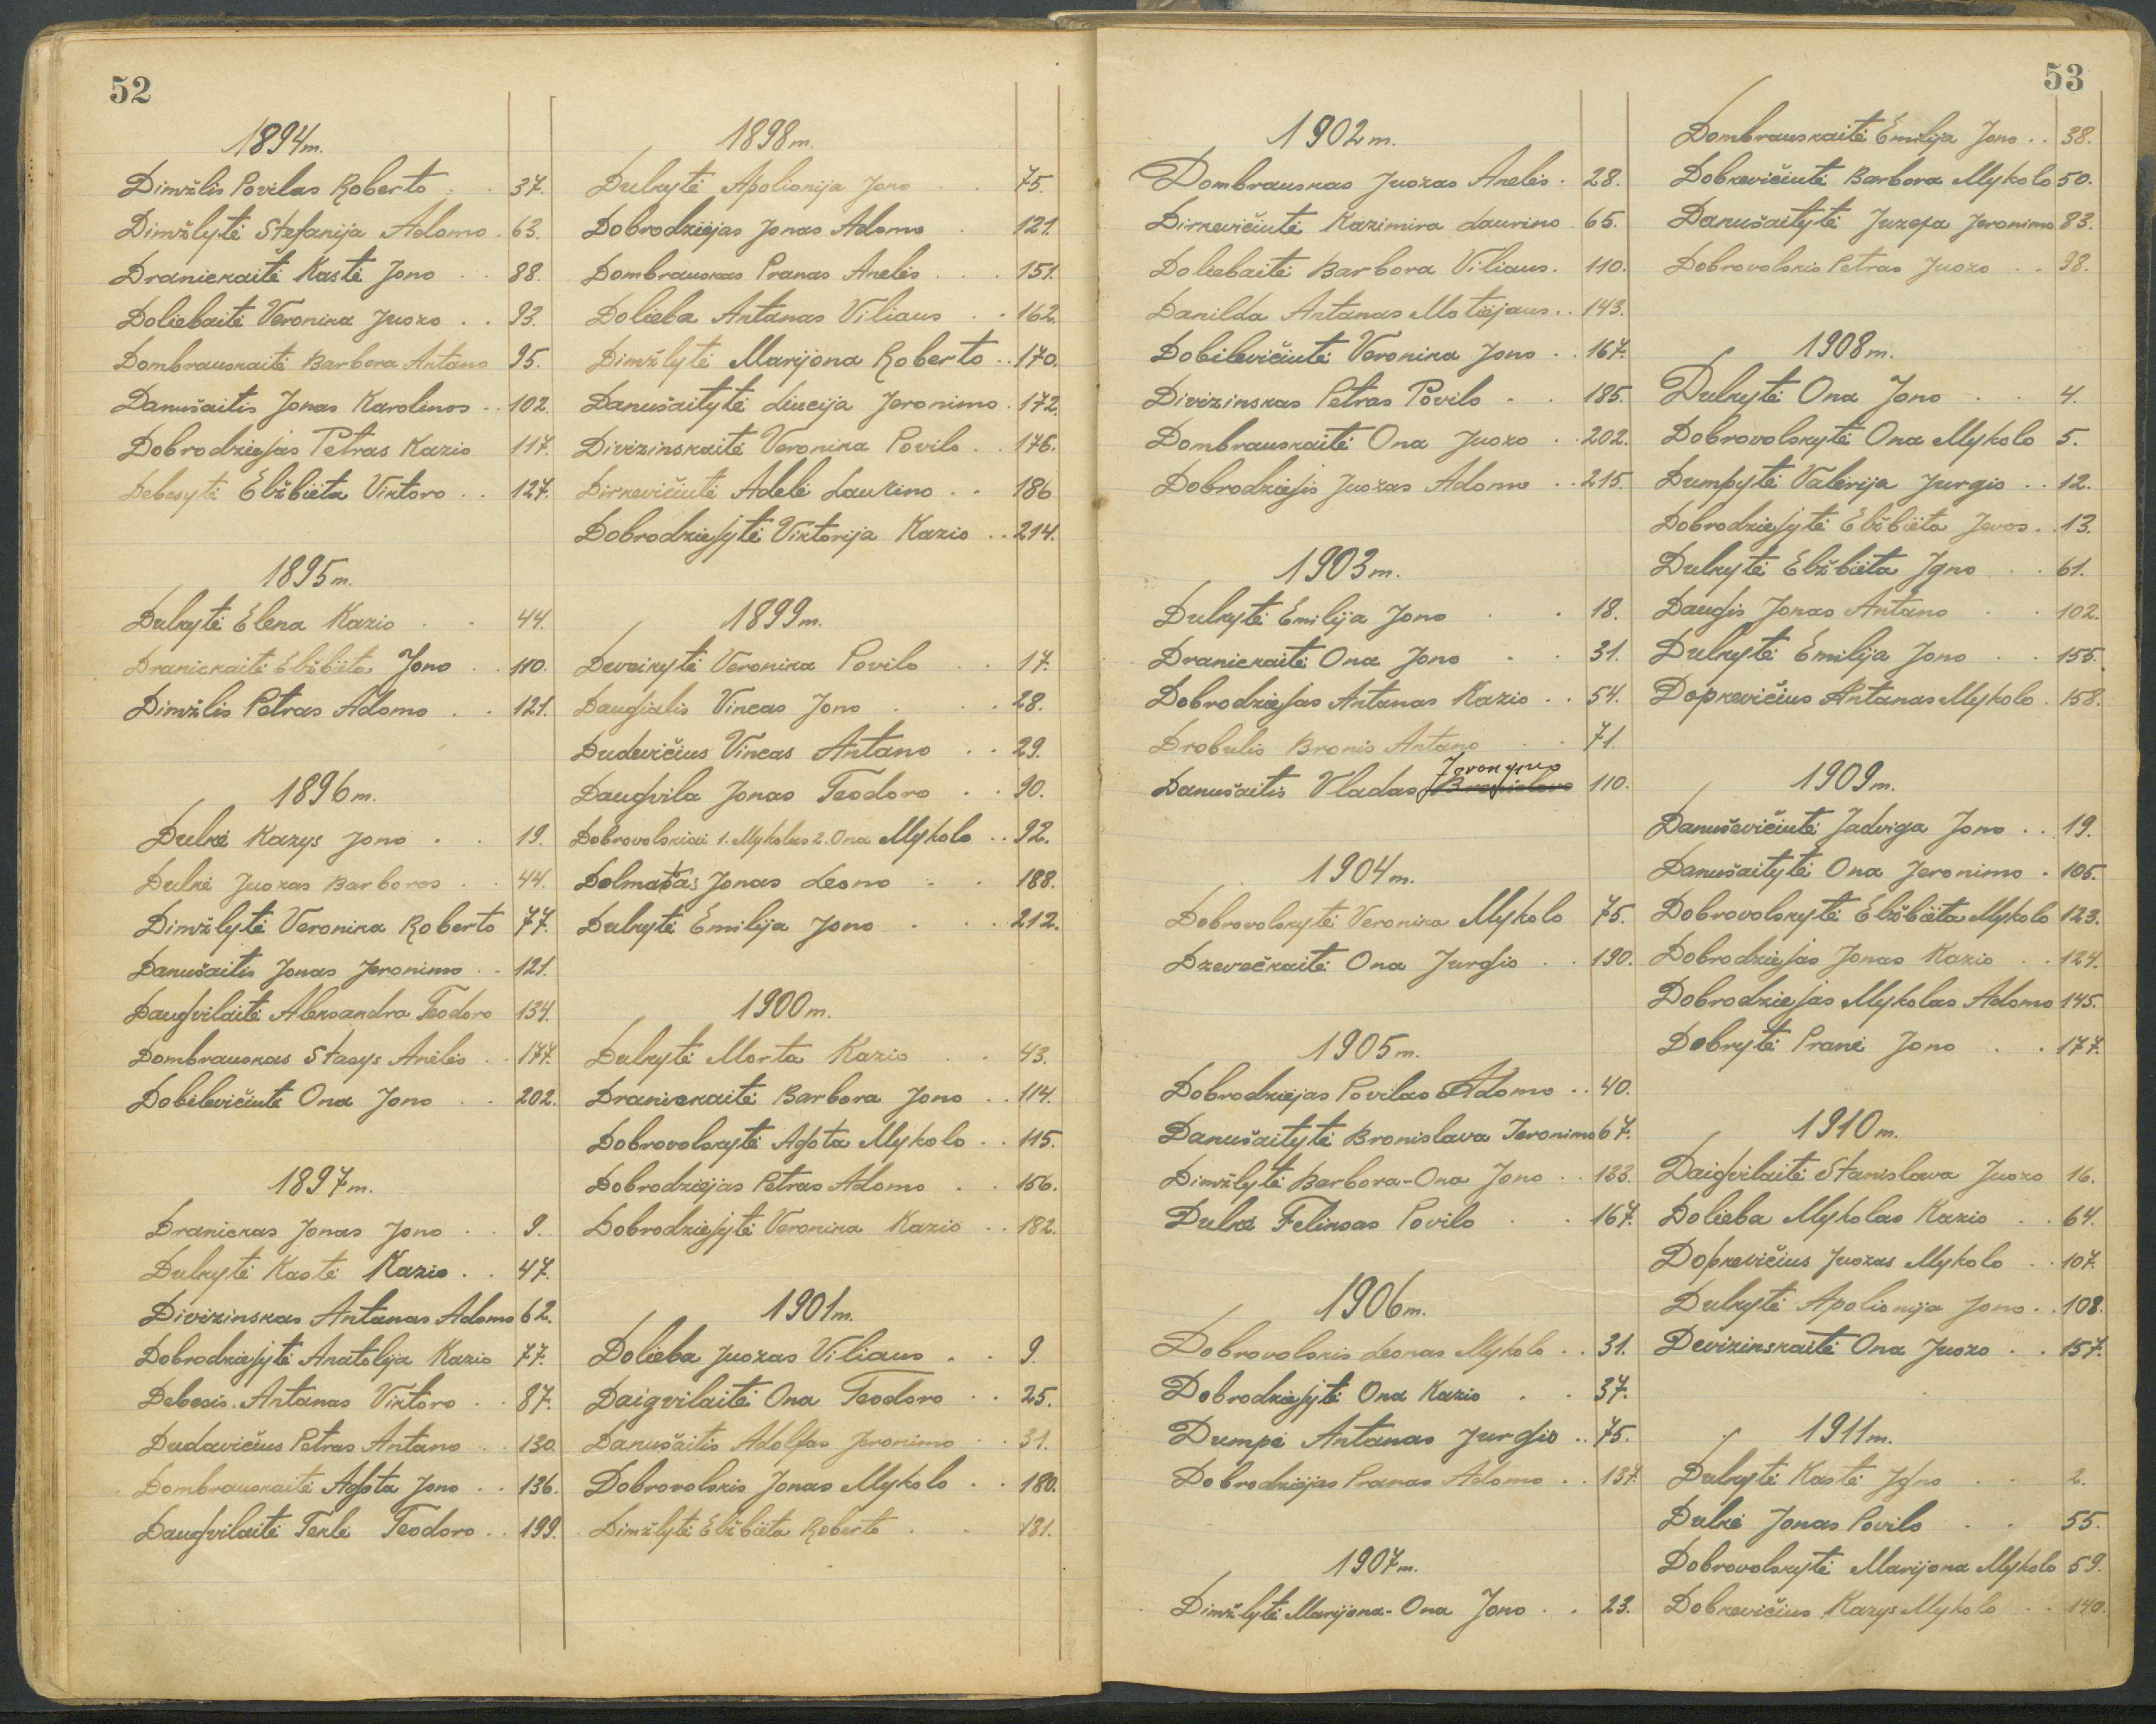 52
1894 m.
Dimžlis Povilas Roberto . . 37.
Dimžlytė Stefanija Adomo . 63.
Dranickaitė Kastė Jono . . 88.
Doliebaitė Veronika Juozo . . 93.
Dombrauskaitė Barbora Antano 95.
Danušaitis Jonas Karolinos . . 102.
Dobrodziejas Petras Kazio 117.
Debesytė Elžbieta Viktoro . . 127.
1895 m.
Dulkytė Elena Kazio . . 44.
Dranickaitė Elžbieta Jono . . 110.
Dimžlis Petras Adomo . . 121.
1896 m.
Dulkė Kazys Jono . . 19.
Dulkė Juozas Barboros . . 44.
Dimžlytė Veronika Roberto 77.
Danušaitis Jonas Jeronimo . . 121.
Daugvilaitė Aleksandra Teodoro 134.
Dombrauskas Stasys Anelės . . 177.
Dobilevičiutė Ona Jono . . 202.
1897 m.
Dranickas Jonas Jono . . 9.
Dulkytė Kastė Kazio . . 47.
Divizinskas Antanas Adomo 62.
Dobrodziejytė Anatolija Kazio 77.
Debesis Antanas Viktoro . . 87.
Dudavičius Petras Antano . . 130.
Dombrauskaitė Agota Jono . . 136.
Daugvilaitė Teklė Teodoro . . 199.
1898 m.
Dulkytė Apolionija Jono . . 75.
Dobrodziejas Jonas Adomo . 121.
Dombrauskas Pranas Anelės . . . 151.
Dolieba Antanas Viliaus . . 162.
Dimžlytė Marijona Roberto . . 170.
Danušaitytė Liucija Jeronimo . 172.
Divizinskaitė Veronika Povilo . . 176.
Dirkevičiutė Adelė Laurino . . 186
Dobrodziejytė Viktorija Kazio . . 214.
1899 m.
Deveikytė Veronika Povilo . . 17.
Daugialis Vincas Jono . . . 28.
Dudevičius Vincas Antano . . 29.
Daugvila Jonas Teodoro . . 90.
Dobrovolskiai 1. Mykolas 2. Ona Mykolo . . 92.
Dolmatas Jonas Leono . . 188.
Dulkytė Emilija Jono . . . 212.
1900 m.
Dulkytė Morta Kazio . . 43.
Dranickaitė Barbora Jono . . 114.
Dobrovolskytė Agota Mykolo . . 115.
Dobrodziejas Petras Adomo . . 156.
Dobrodziejytė Veronika Kazio . . 182.
1901 m.
Dolieba Juozas Viliaus . . 9.
Daigvilaitė Ona Teodoro . . 25.
Danušaitis Adolfas Jeronimo . . 31.
Dobrovolskis Jonas Mykolo . . 180.
Dimžlytė Elžbieta Roberto . . 181.
53
1902 m.
Dombrauskas Juozas Anelės . 28.
Dirkevičiutė Kazimira Laurino . 65.
Doliebaitė Barbora Viliaus . 110.
Danilda Antanas Motiejaus . . 143.
Dobilevičiutė Veronika Jono . . 167.
Divizinskas Petras Povilo . . 185.
Dombrauskaitė Ona Juozo . . 202.
Dobrodziejis Juozas Adomo . . 215.
1903 m.
Dulkytė Emilija Jono . . 18.
Dranickaitė Ona Jono . . 31.
Dobrodziejas Antanas Kazio . . 54.
Drobulis Bronis Antano . . 71.
Jeronymo
Danušaitis Vladas Bronislavo 110.
1904 m.
Dobrovolskytė Veronika Mykolo 75.
Dzevečkaitė Ona Jurgio . . 190.
1905 m.
Dobrodziejas Povilas Adomo . . 40.
Danušaitytė Bronislava Jeronimo 67.
Dimžlytė Barbora-Ona Jono . . 133.
Dulkė Feliksas Povilo . . 167.
1906 m.
Dobrovolskis Leonas Mykolo . . 31.
Dobrodziejytė Ona Kazio . . 37.
Dumpė Antanas Jurgio . . 75.
Dobrodziejas Pranas Adomo . . 137.
1907 m.
Dimžlytė Marijona-Ona Jono . . 23.
Dombrauskaitė Emilija Jono . . 38.
Dobkevičiutė Barbora Mykolo 50.
Danušaitytė Juzefa Jeronimo 83.
Dobrovolskis Petras Juozo . . 98.
1908 m.
Dulkytė Ona Jono . . 4.
Dobrovolskytė Ona Mykolo 5.
Dumpytė Valerija Jurgio . . 12.
Dobrodziejytė Elžbieta Jevos . . 13.
Dulkytė Elžbieta Igno . . 61.
Daugis Jonas Antano . . 102.
Dulkytė Emilija Jono . . 155.
Dopkevičius Antanas Mykolo . 158.
1909 m.
Danuševičiutė Jadviga Jono . . 19.
Danušaitytė Ona Jeronimo . 105.
Dobrovolskytė Elžbieta Mykolo 123.
Dobrodziejas Jonas Kazio . . 124.
Dobrodziejas Mykolas Adomo 145.
Dobkytė Pranė Jono . . 177.
1910 m.
Daigvilaitė Stanislava Juozo 16.
Dolieba Mykolas Kazio . . 64.
Dopkevičius Juozas Mykolo . . 107.
Dulkytė Apolionija Jono . . 108.
Devizinskaitė Ona Juozo . . 157.
1911 m.
Dulkytė Kastė Igno . . 2.
Dulkė Jonas Povilo . . 55.
Dobrovolskytė Marijona Mykolo 59.
Dobkevičius Kazys Mykolo . . 140.